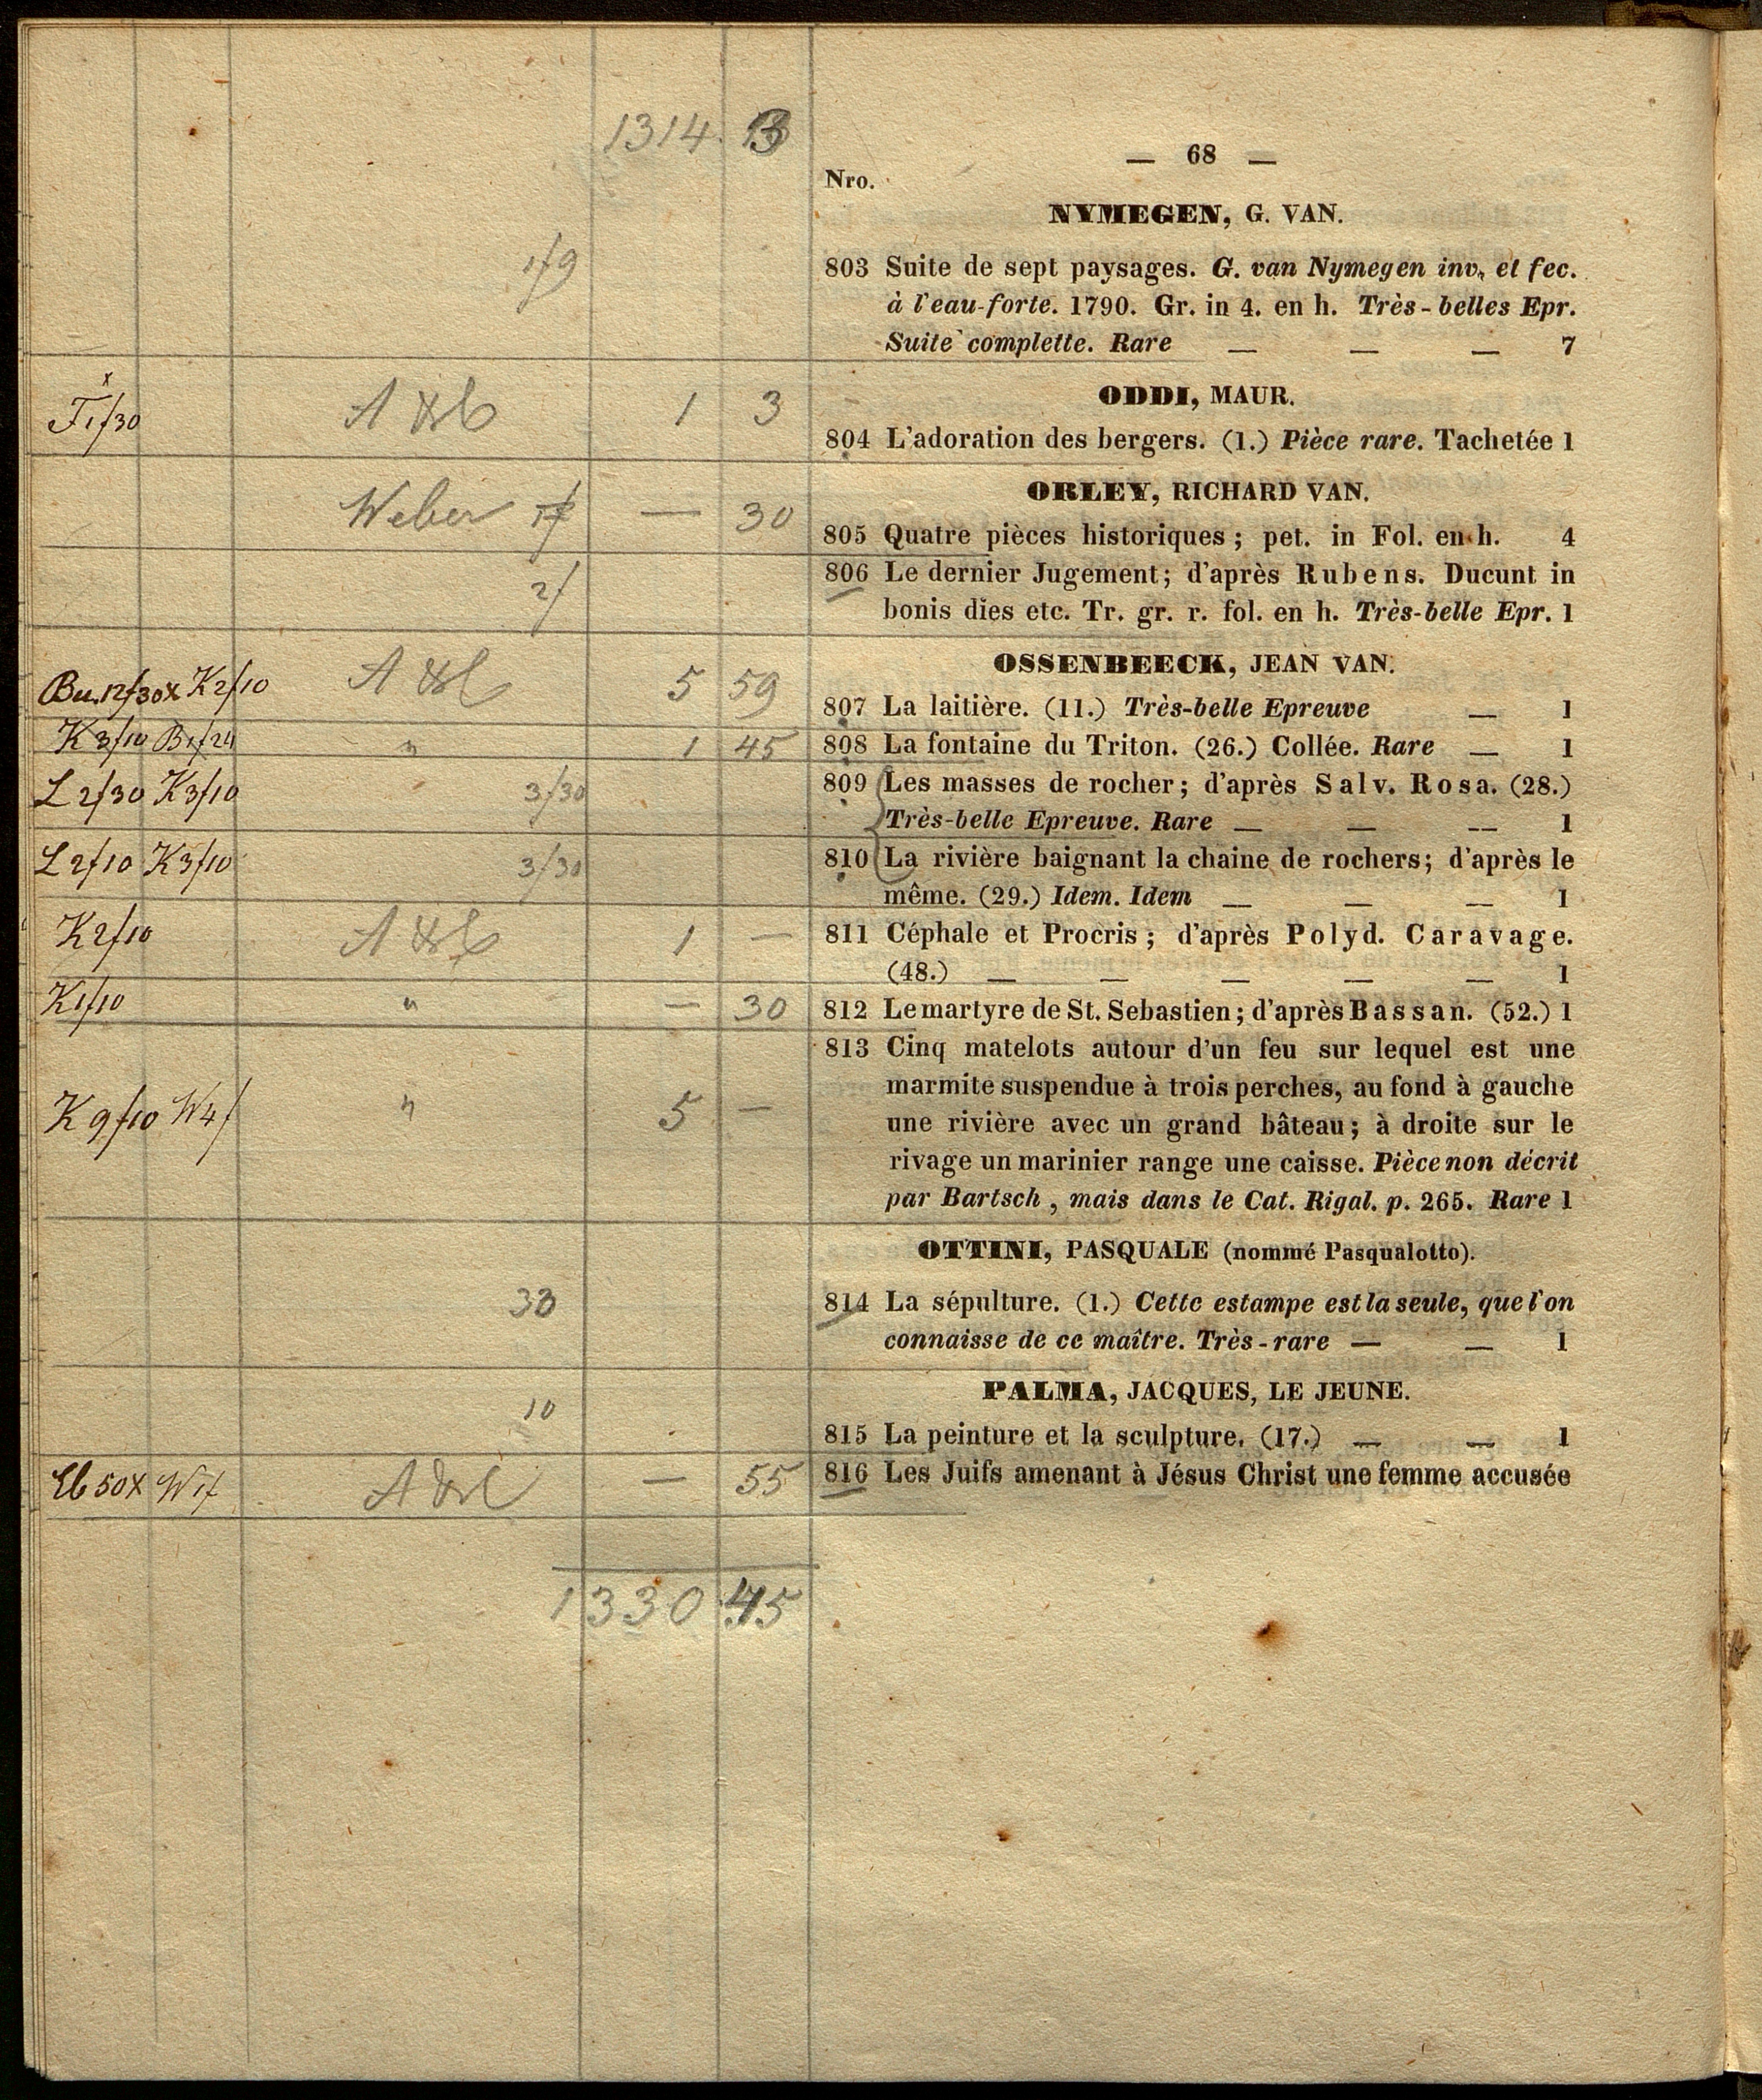 1314. 13
— 68 —
Nro.
NYMEGEN, G. VAN.
1f9
803 Suite de sept paysages. G. van Nymegen inv. et fec.
à l'eau-forte. 1790. Gr. in 4. en h. Très-belles Epr.
Suite complette. Rare — — — 7
ODDI, MAUR.
x
1 3
804 L'adoration des bergers. (1.) Pièce rare. Tachetée 1
ORLEY, RICHARD VAN.
Weber — 30
805 Quatre pièces historiques; pet. in Fol. en h. 4
2f
806 Le dernier Jugement; d'après Rubens. Ducunt in
bonis dies etc. Tr. gr. r. fol. en h. Très-belle Epr. 1
OSSENBEECK, JEAN VAN.
Bu.12/30x K2f10 5 59
807 La laitière. (11.) Très-belle Epreuve — 1
K3f10 B1f24 " 1 45 808 La fontaine du Triton. (26.) Collée. Rare — 1
L2f30 K3f10 3f30 809 Les masses de rocher; d'après Salv. Rosa. (28.)
Très-belle Epreuve. Rare — — — 1
L2f10 K3f10 3f30 810 La rivière baignant la chaine de rochers; d'après le
même. (29.) Idem. Idem — — — 1
K2f10 1 — 811 Céphale et Procris; d'après Polyd. Caravage.
(48.) — — — — — 1
K1f10 " — 30 812 Le martyre de St. Sebastien; d'après Bassan. (52.) 1
813 Cinq matelots autour d'un feu sur lequel est une
marmite suspendue à trois perches, au fond à gauche
K9f10 W4f " 5 — une rivière avec un grand bâteau; à droite sur le
rivage un marinier range une caisse. Pièce non décrit
par Bartsch, mais dans le Cat. Rigal. p. 265. Rare 1
OTTINI, PASQUALE (nommé Pasqualotto).
814 La sépulture. (1.) Cette estampe est la seule, que l'on
connaisse de ce maître. Très-rare — — 1
PALMA, JACQUES, LE JEUNE.
10
815 La peinture et la sculpture. (17.) — — 1
— 55 816 Les Juifs amenant à Jésus Christ une femme accusée
1330 45